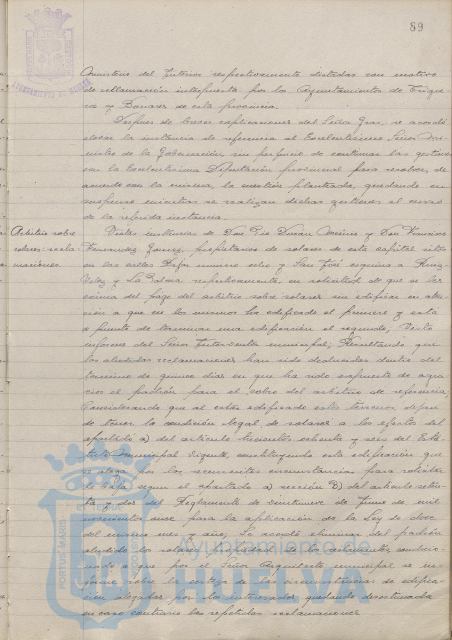 89
AYUNTAMIENTO DE HUELVA
Ministerio del Interior respectivamente dictadas con motivo
de reclamación interpuesta por los Ayuntamientos de
y Bonares de esta provincia.
Despues de breves esplicaciones del Señor se acordó
elevar la instancia de referencia al Excelentísimo Señor
de la Gobernación, sin perjuicio de continuar las gestiones
con la Excelentísima Diputación provincial para resolver, de
acuerdo con la misma, la cuestión planteada, quedando en
suspenso mientras se realizan dichas gestiones el curso
de la referida instancia.
Arbitrio sobre
solares: recla-
maciones.
Vistas instancias de Don Duran y Don Francisco
Fernandez Gomez, propietarios de solares de esta capital sitos
en las calles numero ocho y San José esquina a
y La Palma respectivamente, en solicitud de que se les
exima del pago del arbitrio sobre solares sin edificar en aten-
ción a que en los mismos ha edificado el primero y está
a punto de terminar una edificación el segundo; Visto
informe del Señor Interventor municipal; Resultando que
las aludidas reclamaciones han sido deducidas dentro del
termino de quince dias en que ha sido expuesto de agra-
cios el padrón para el cobro del arbitrio de referencia;
Considerando que al estar edificados estos terrenos, dejan
de tener la condición legal de solares a los efectos del
apartado a) del articulo trescientos ochenta y seis del Esta-
tuto municipal vigente, constituyendo esta edificación que
se alega una de las circunstancias para solicitar
la baja segun el apartado a) sección B) del articulo
y dos del Reglamento de veintinueve de Junio de mil
novecientos once para la aplicación de la Ley de doce
del mismo mes y año; Se acordó eliminar del padrón
aludido los solares propiedad de los reclamantes,
a que por el Señor Arquitecto municipal se in-
forme sobre la certeza de las circunstancias de edifica-
ción alegadas por los interesados quedando desestimadas
en caso contrario las repetidas reclamaciones.
PORTUS MARIS
Ayuntamiento de
HUELVA